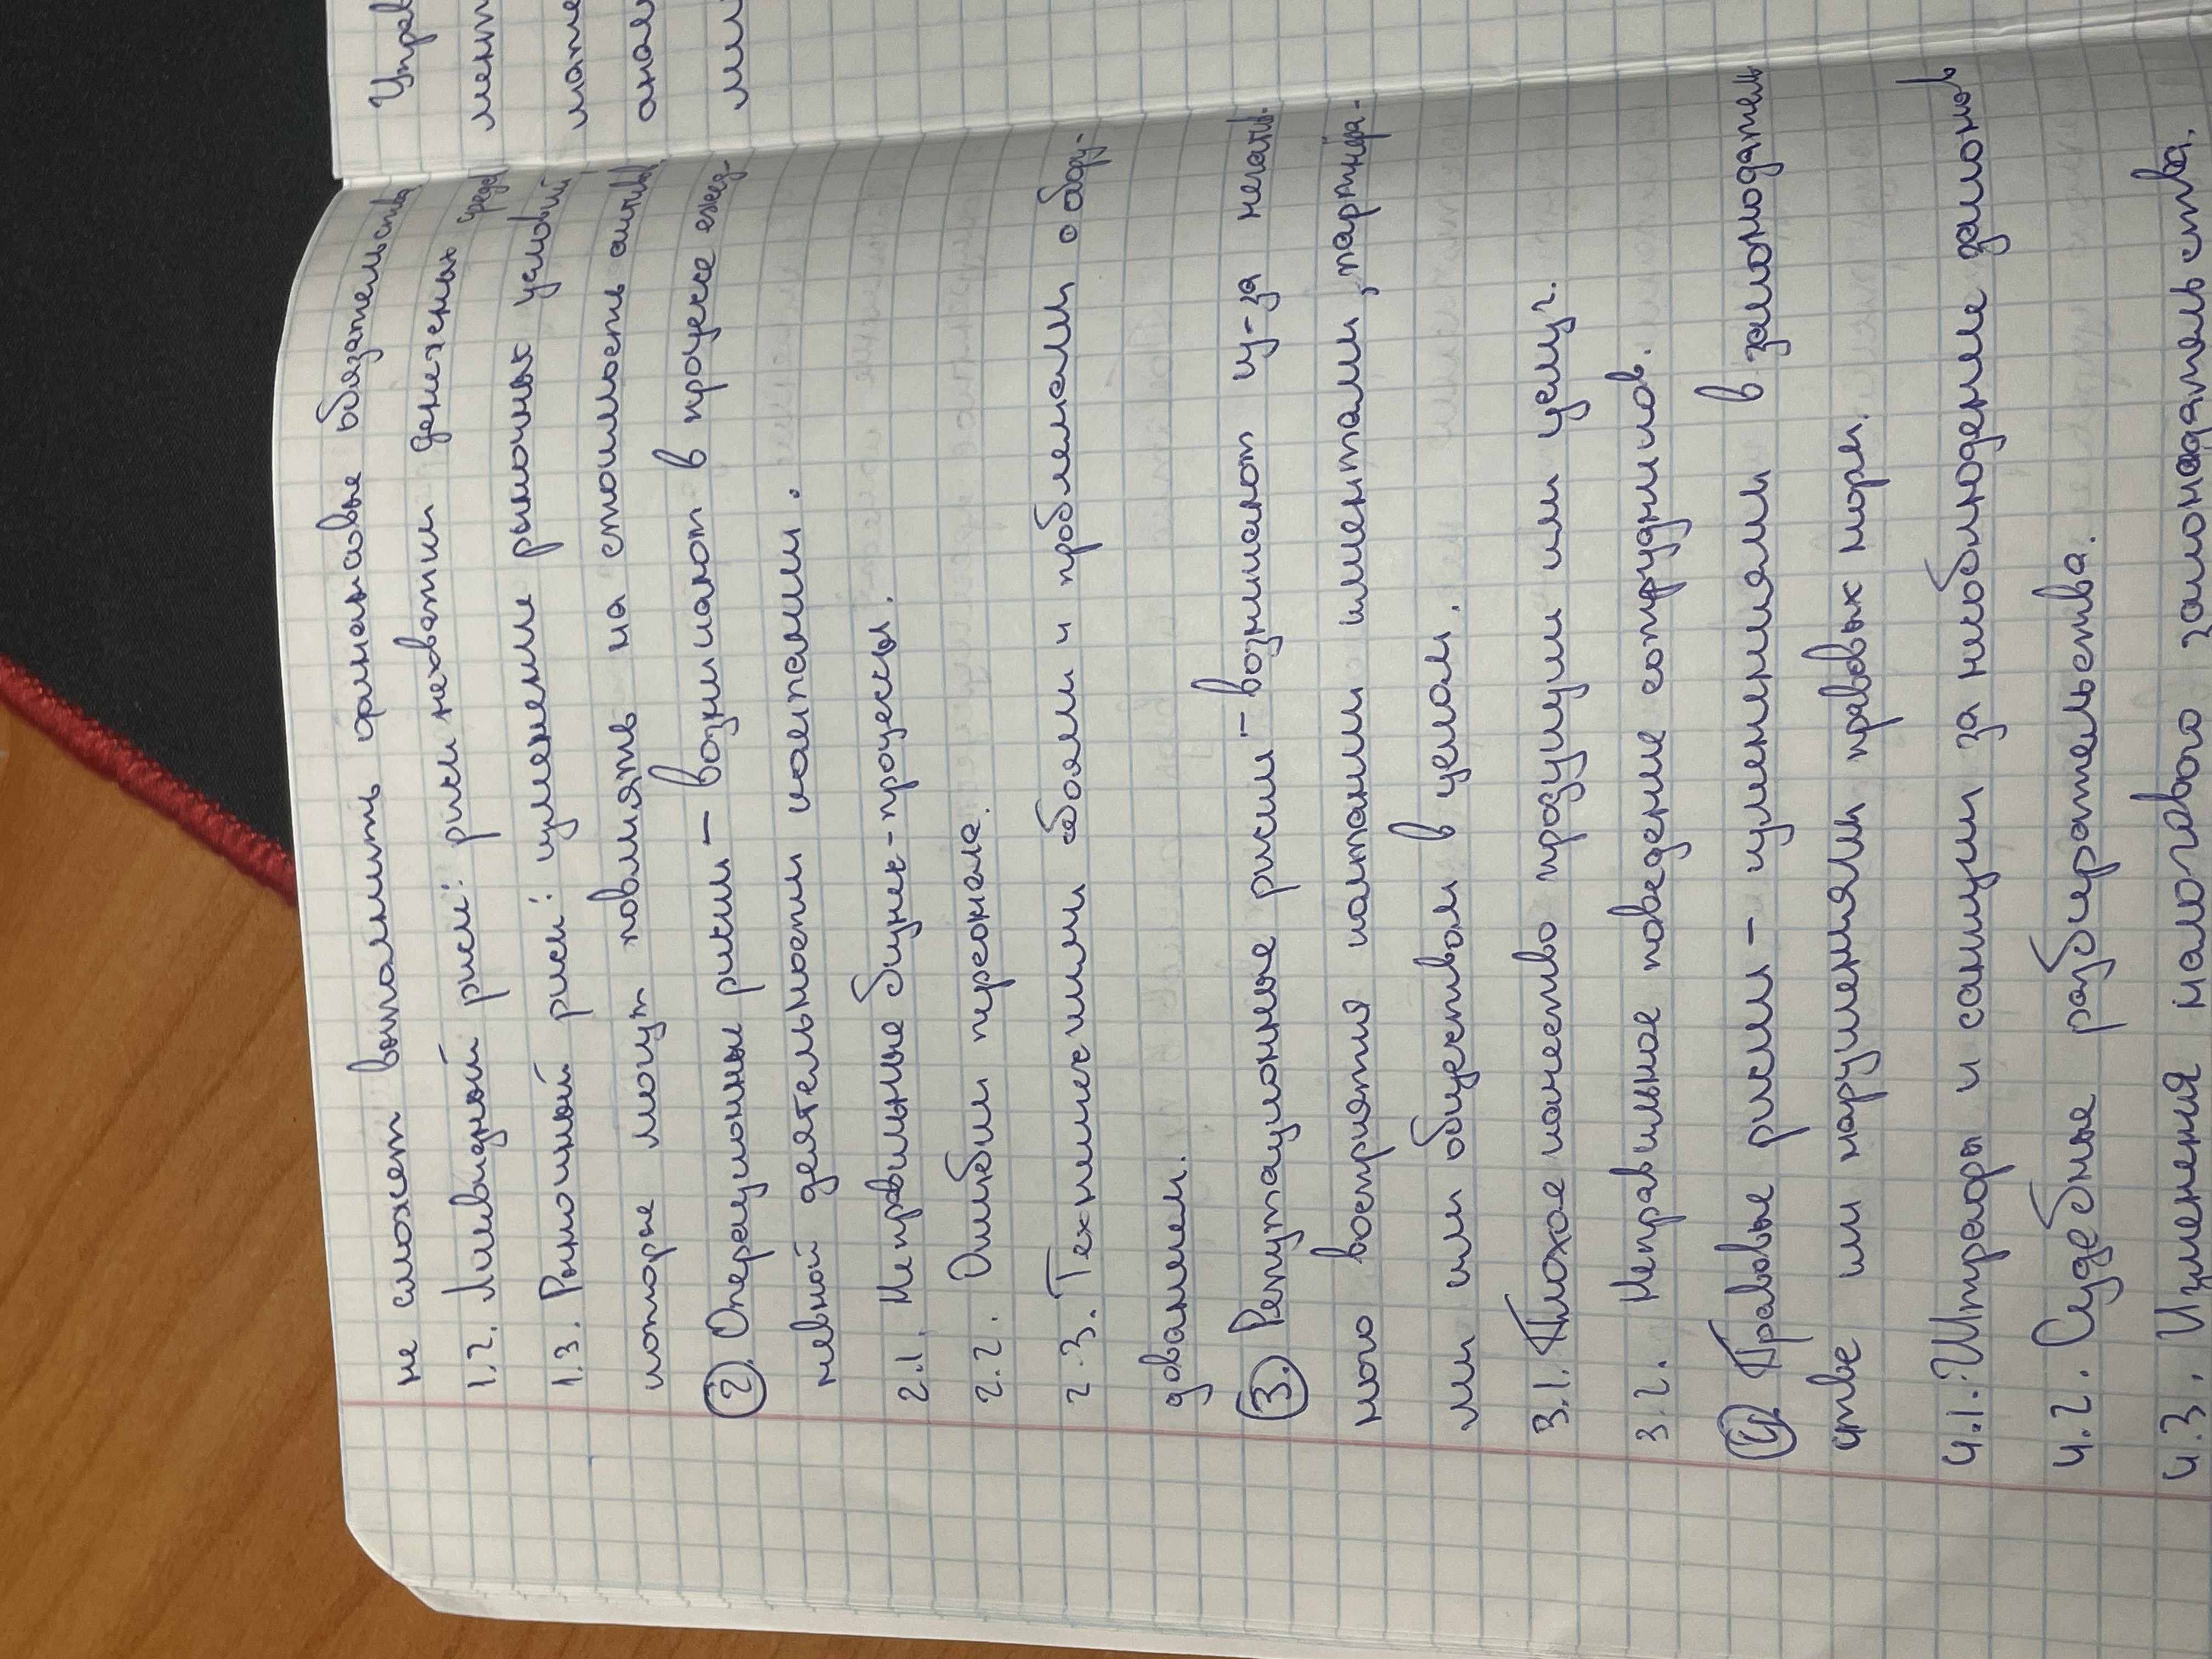 не сможет выполнить финансовые обязательства
1.2. Ликвидный риск: риск нехватки денежных сред
1.3. Рыночный риск: изменение рыночных условий
которые могут повлиять на стоимость активы
2. Операционные риски — возникают в процессе ежед-
невной деятельности компании.
2.1. Неправильные бизнес-процессы.
2.2. Ошибки персонала.
2.3. Техническими сбоями и проблемами обору-
дованием.
3. Репутационные риски — возникают из-за негатив-
ного восприятия компании клиентами, партнёра-
ми или обществом в целом.
3.1. Плохое качество продукции или услуг.
3.2. Неправильное поведение сотрудников.
4. Правовые риски — изменениями в законодатель
стве или нарушениями правовых норм.
4.1. Штрафы и санкции за несоблюдение законов
4.2. Судебные разбирательства.
4.3. Изменения налогового законодательства.
Управ
мент